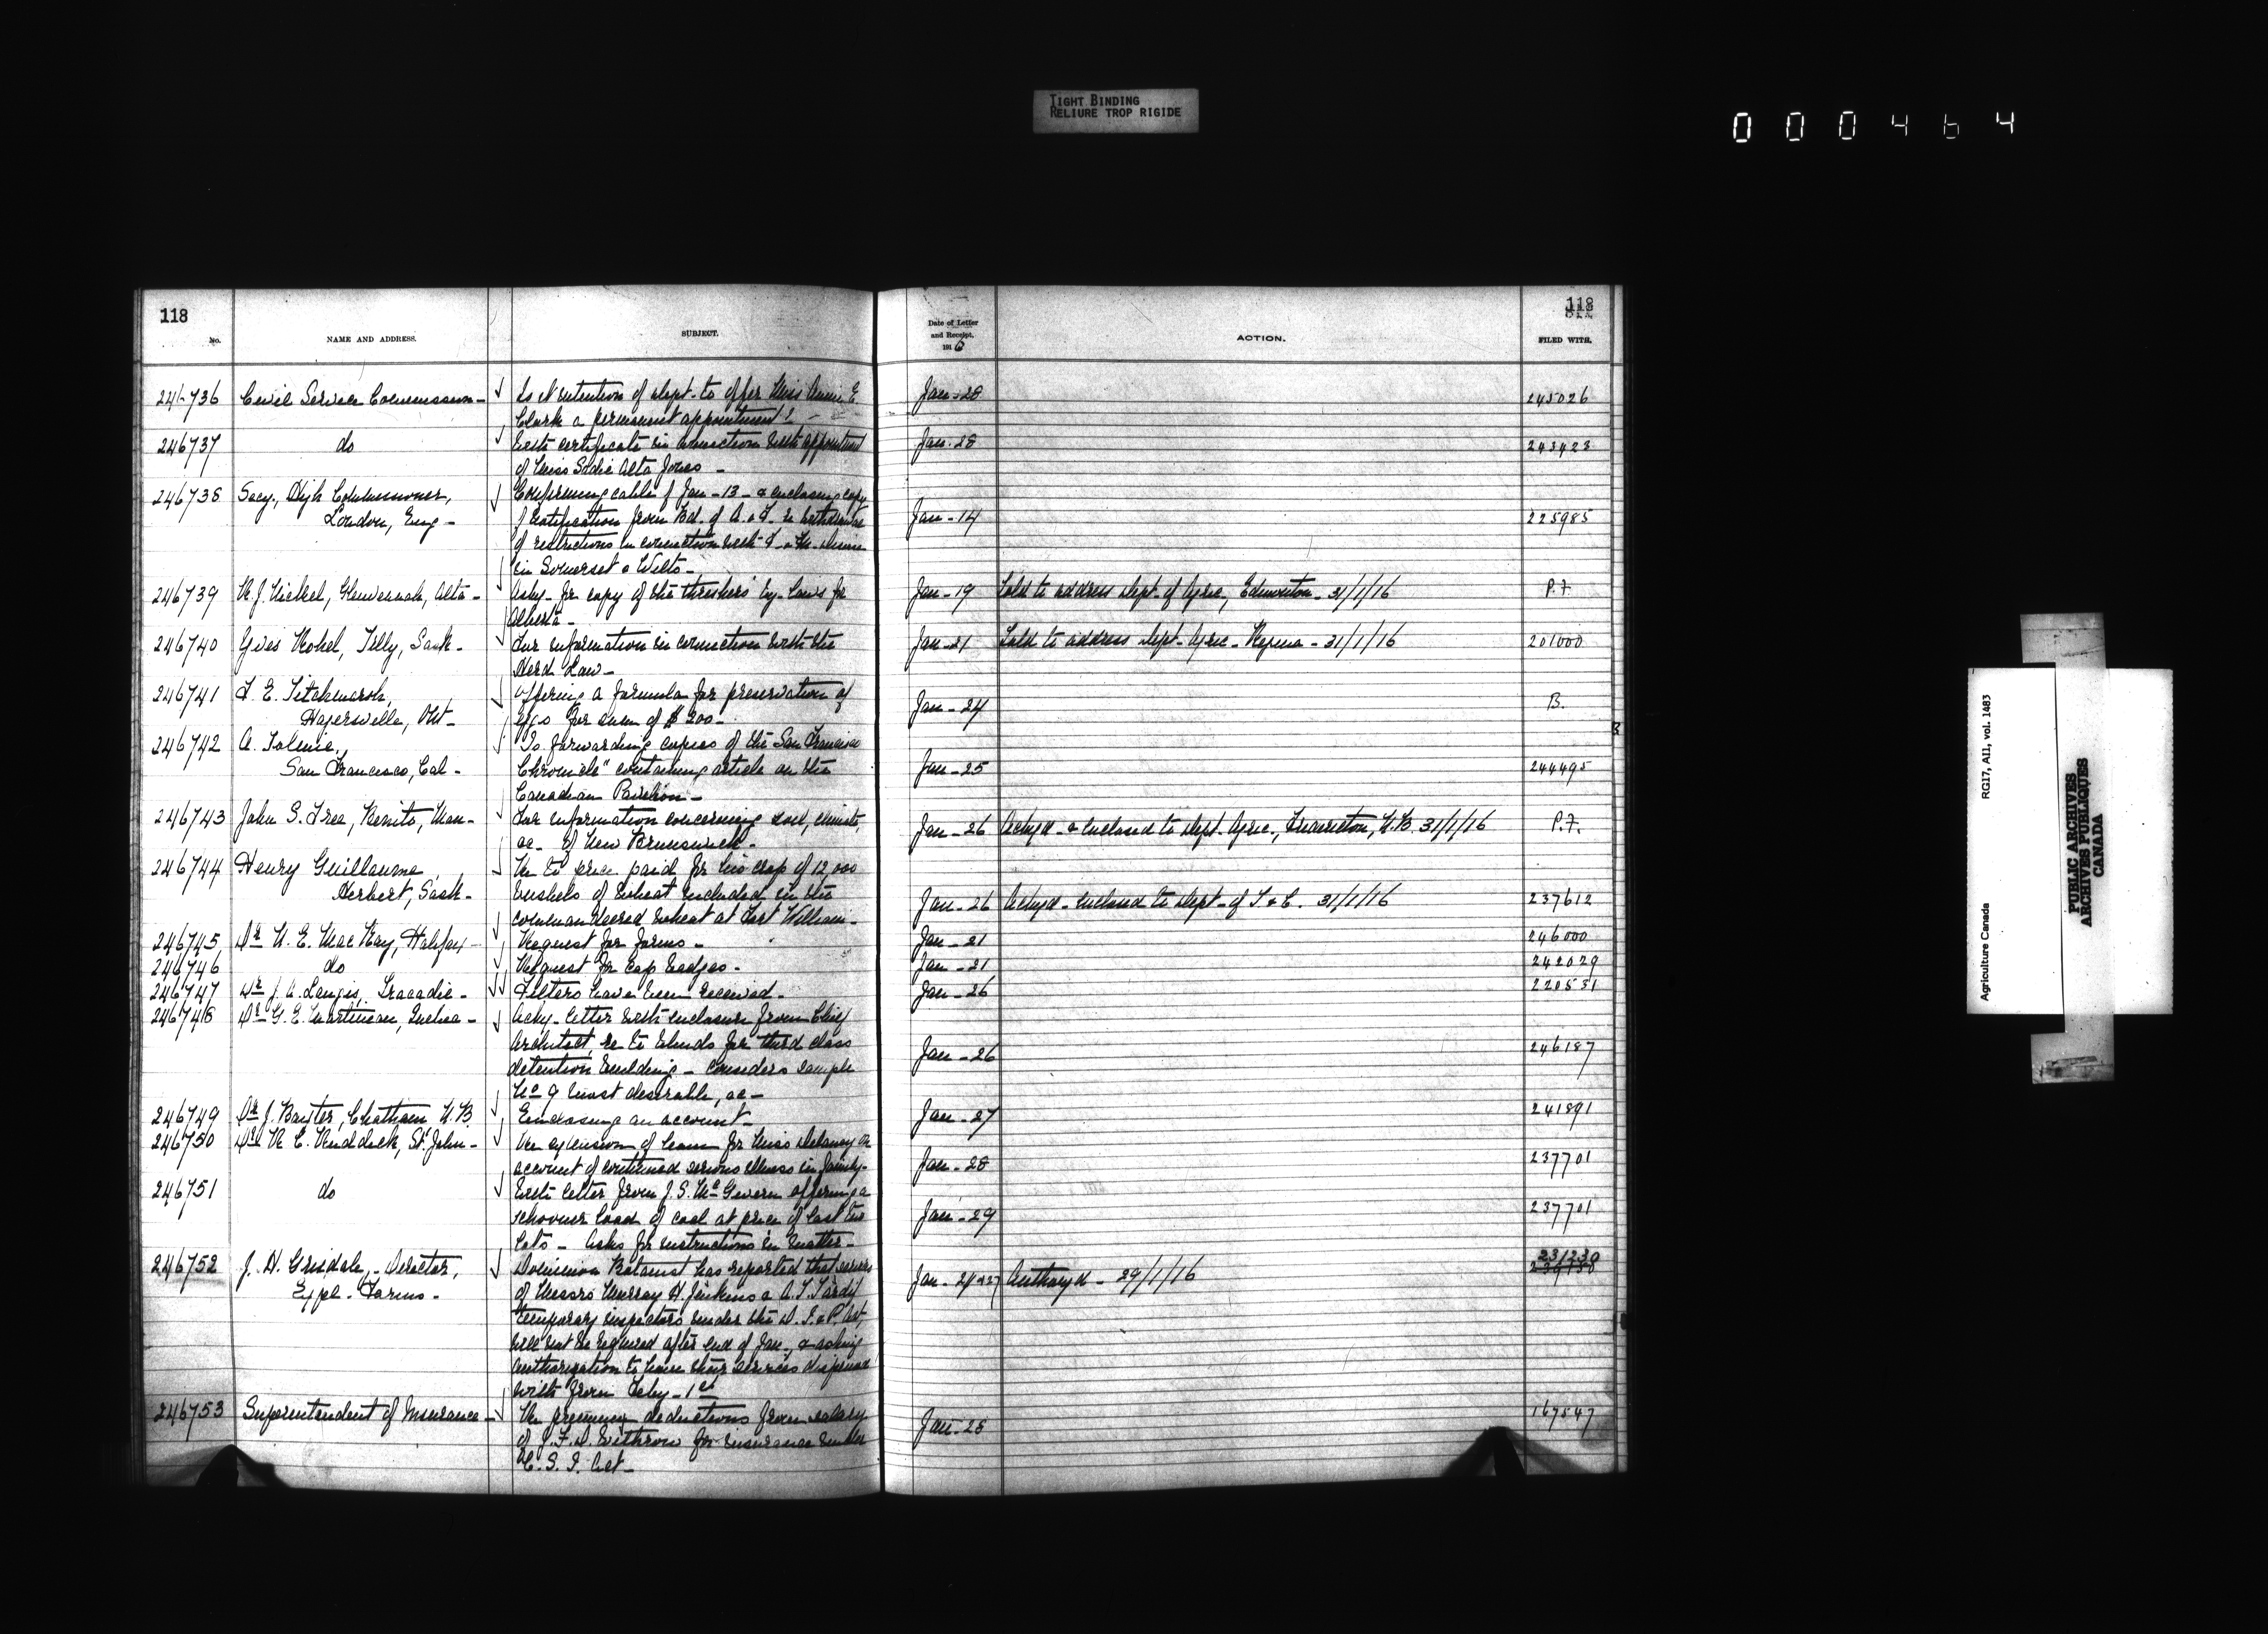 TIGHT BINDING
RELIURE TROP RIGIDE
000464
118
No.
NAME AND ADDRESS.
SUBJECT.
246736 Civil Service Commission - Is it intention of dept. to offer Miss Annie E.
Clark a permanent appointment?
246737 do With certificate in connection with appointment
of Miss Sadie Alta Jones -
246738 Secy., High Commissioner, Confirming cable of Jan - 13 - & enclosing copy
London, Eng - of notification from Bd. of A. & F. re withdrawal
of restrictions in connection with F. & M. disease
in Somerset & Wilts -
246739 Alta - Asks for copy of the threshers' by-laws for
Alberta -
246740 Tilly, Sask - For information in connection with the
Herd Law -
246741 F. E. Titchmarsh, Offering a formula for preservation of
Hagersville, Ont - eggs for sum of $200 -
246742 A. Tolmie, Is forwarding copies of the San Francisco
San Francisco, Cal - Chronicle" containing article on the
Canadian Pavilion -
246743 John S. Free, Benito, Man - For information concerning soil, climate
&c - of New Brunswick -
246744 Henry Guillaume, Re to price paid for his crop of 12,000
Herbert, Sask - bushels of wheat included in the
commandeered wheat at Fort William -
246745 Dr. N. E. MacKay, Halifax - Request for forms -
246746 do Request for cap badges -
246747 Dr. J. A. Langis, Tracadie - Filters have been received -
246748 Dr. G. E. Martineau, Quebec - Acks - letter with enclosure from Chief
Architect, re to blinds for third class
detention building - considers sample
No 9 most desirable, &c -
246749 Dr. J. Baxter, Chatham N.B. Enclosing an account -
246750 Dr. St. John - Re extension of leave for Miss Delaney on
account of continued serious illness in family -
246751 do With letter from J. S. McGivern offering a
schooner load of coal at price of last two
lots - Asks for instructions in matter -
246752 J. H. Grisdale, - Director, Dominion Botanist has reported that services
Expl - Farms - of Messrs Murray H. Jenkins & A. T. Tardif
temporary inspectors under the D. I. & P. Act,
will not be required after end of Jan., & asking
authorization to have their services dispensed
with from Feby - 1st
246753 Superintendent of Insurance - Re premium deductions from salary
of J. F. D. Withrow for insurance under
C. S. I. Act -
118
Date of Letter
and Receipt,
1916
ACTION.
FILED WITH.
Jan - 28 245026
Jan - 28 243423
Jan - 14 225985
Jan - 19 Told to address Dept. of Agric., Edmonton - 31/1/16 P.F.
Jan - 21 Told to address Dept - Agric - Regina - 31/1/16 201000
Jan - 24 B.
Jan - 25 244495
Jan - 26 Ackgd - & enclosed to Dept - Agric., Fredericton, N.B. 31/1/16 P.F.
Jan - 26 Ackgd - enclosed to Dept - of T. & C. 31/1/16 237612
Jan - 21 246000
Jan - 21 242029
Jan - 26 220531
Jan - 26 246187
Jan - 27 241891
Jan - 28 237701
Jan - 29 237701
231230
Jan - 21 & 27 Authzgd - 29/1/16
Jan - 28 167547
Agriculture Canada
RG17, AII, vol. 1483
PUBLIC ARCHIVES
ARCHIVES PUBLIQUES
CANADA